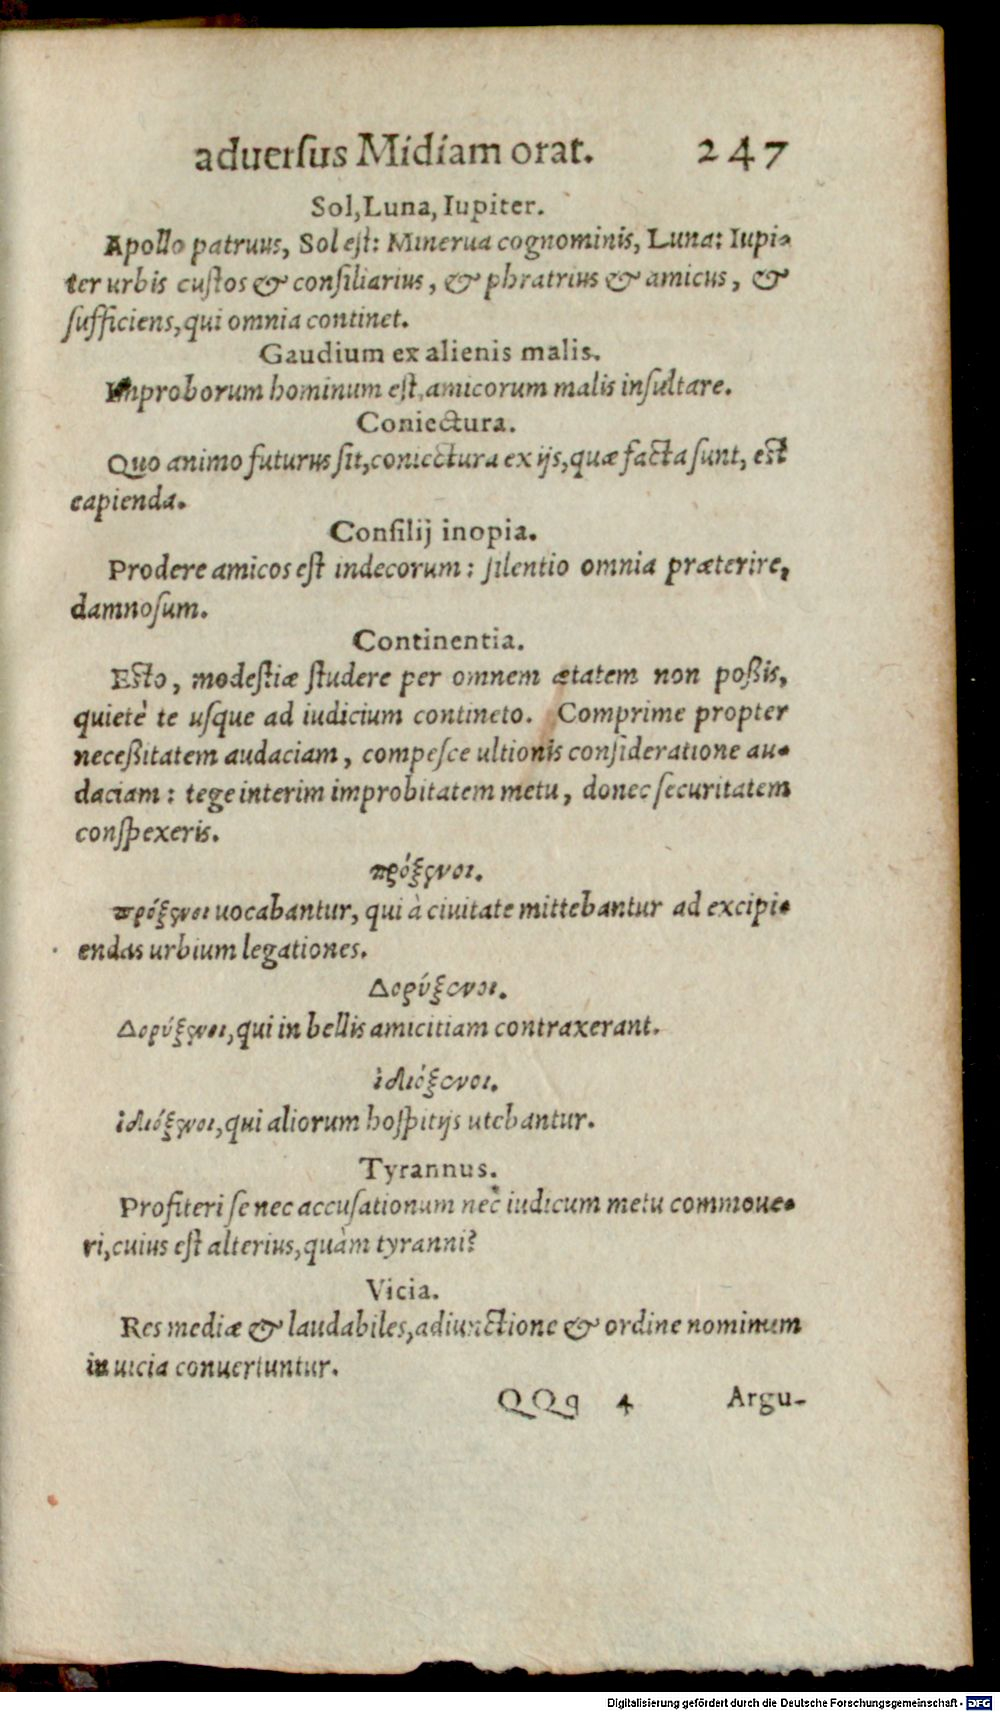 adversus Midiam orat. 247
Sol, Luna, Iupiter.
Apollo patruus, Sol est: Minerua cognominis, Luna: Iupi-
ter urbis custos & consiliarius, & phratrius & amicus, &
sufficiens, qui omnia continet.
Gaudium ex alienis malis.
Improborum hominum est, amicorum malis insultare.
Coniectura.
Quo animo futurus sit, coniectura ex ijs, quæ facta sunt, est
capienda.
Consilij inopia.
Prodere amicos est indecorum: silentio omnia præterire,
damnosum.
Continentia.
Esto, modestiæ studere per omnem ætatem non poßis,
quietè te usque ad iudicium contineto. Comprime propter
neceßitatem audaciam, compesce ultionis consideratione au-
daciam: tege interim improbitatem metu, donec securitatem
conspexeris.
πρόξενοι.
πρόξενοι uocabantur, qui à ciuitate mittebantur ad excipi-
endas urbium legationes.
Δορύξενοι.
Δορύξενοι, qui in bellis amicitiam contraxerant.
ἰδιόξενοι.
ἰδιόξενοι, qui aliorum hospitijs utebantur.
Tyrannus.
Profiteri se nec accusationum nec iudicum metu commoue-
ri, cuius est alterius, quàm tyranni?
Vicia.
Res mediæ & laudabiles, adiunctione & ordine nominum
in uicia conuertuntur.
QQq 4 Argu-
Digitalisierung gefördert durch die Deutsche Forschungsgemeinschaft - DFG